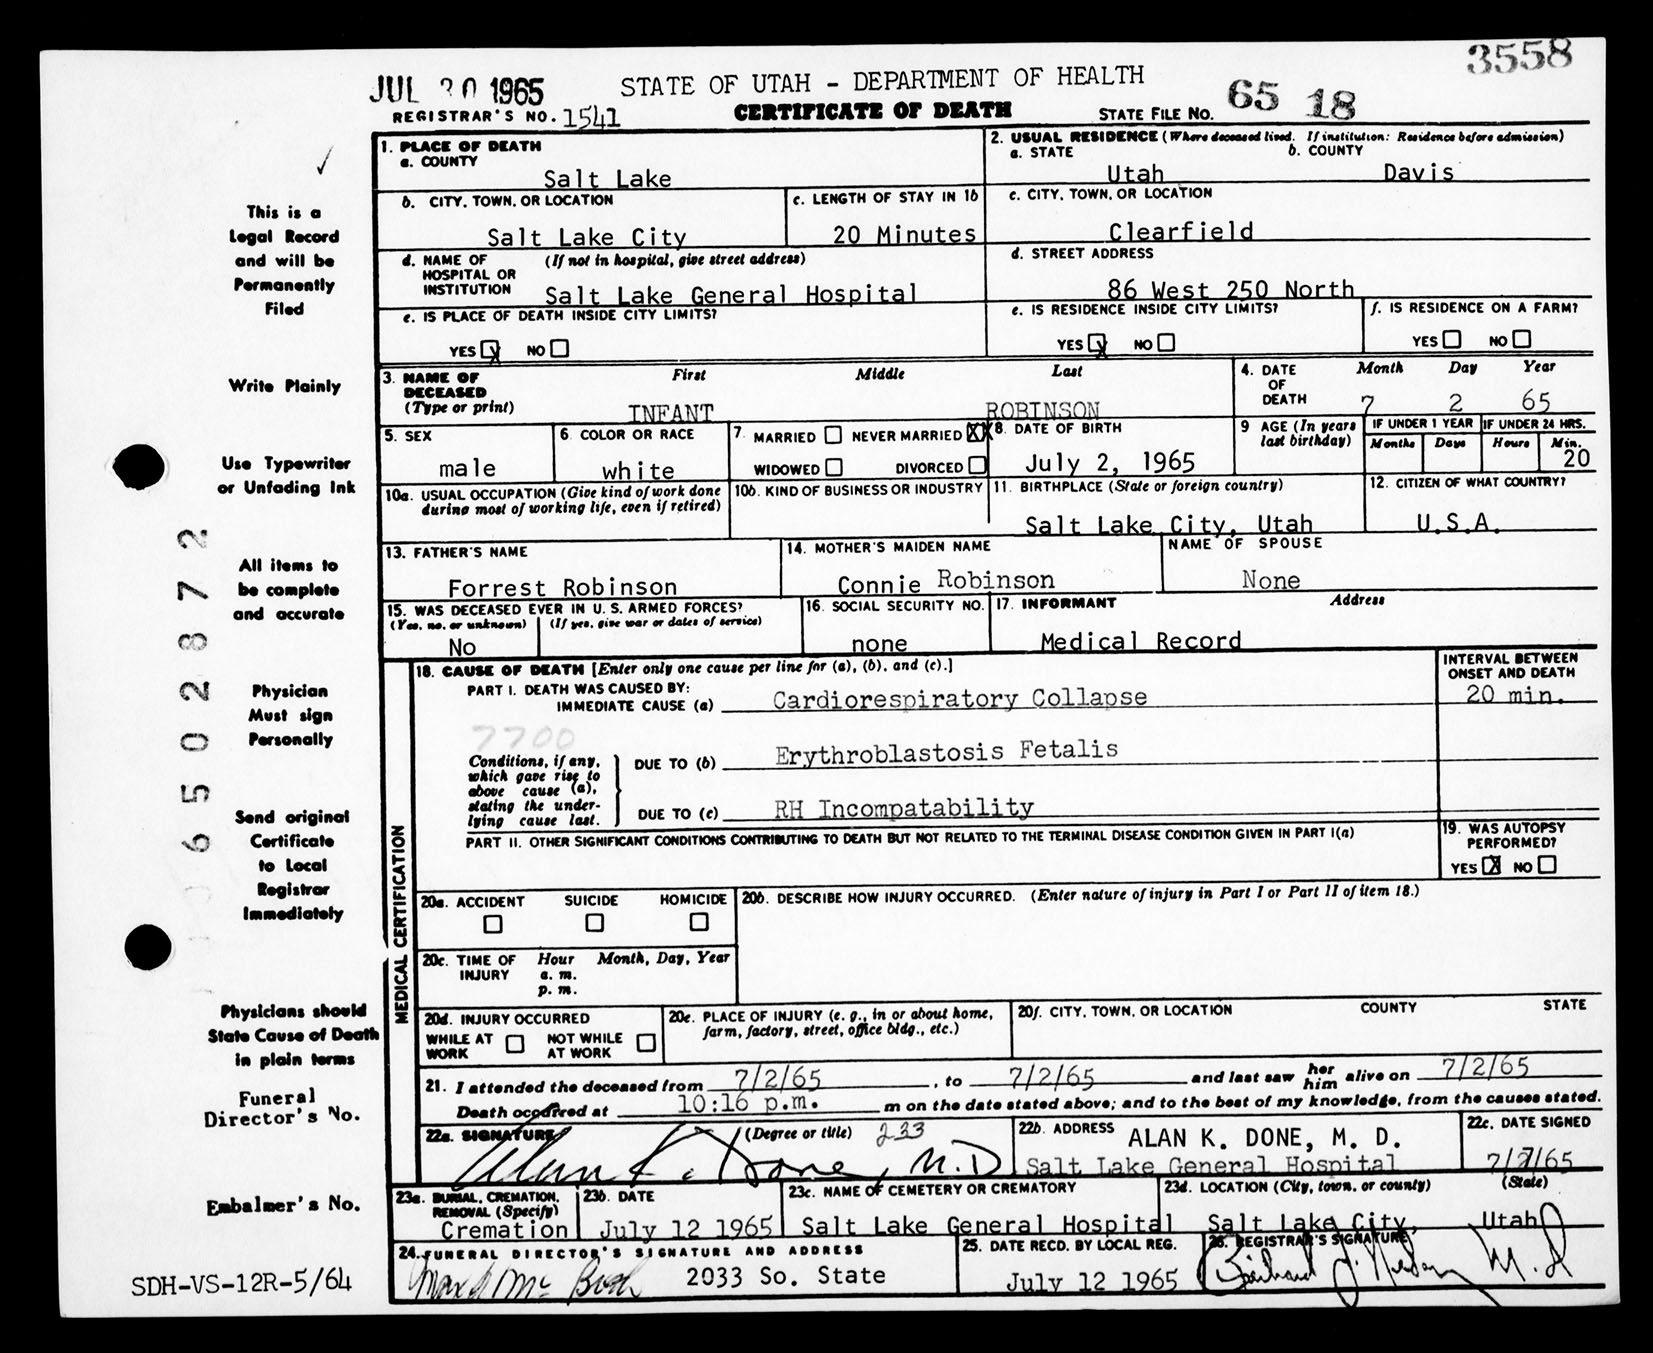 3558
JUL 20 1965 STATE OF UTAH - DEPARTMENT OF HEALTH
REGISTRAR'S NO. 1541 CERTIFICATE OF DEATH STATE FILE NO. 65 18
1. PLACE OF DEATH
a. COUNTY
Salt Lake
2. USUAL RESIDENCE (Where deceased lived. If institution: Residence before admission)
a. STATE b. COUNTY
Utah Davis
b. CITY, TOWN, OR LOCATION c. LENGTH OF STAY IN 1b
Salt Lake City 20 Minutes
c. CITY, TOWN, OR LOCATION
Clearfield
d. NAME OF HOSPITAL OR INSTITUTION (If not in hospital, give street address)
Salt Lake General Hospital
d. STREET ADDRESS
86 West 250 North
e. IS PLACE OF DEATH INSIDE CITY LIMITS?
YES X NO
e. IS RESIDENCE INSIDE CITY LIMITS? f. IS RESIDENCE ON A FARM?
YES X NO YES NO
3. NAME OF DECEASED (Type or print) First Middle Last
INFANT ROBINSON
4. DATE OF DEATH Month Day Year
7 2 65
5. SEX
male
6. COLOR OR RACE
white
7. MARRIED NEVER MARRIED XX
WIDOWED DIVORCED
8. DATE OF BIRTH
July 2, 1965
9 AGE (In years last birthday) IF UNDER 1 YEAR IF UNDER 24 HRS.
Months Days Hours Min.
20
10a. USUAL OCCUPATION (Give kind of work done during most of working life, even if retired)
10b. KIND OF BUSINESS OR INDUSTRY
11. BIRTHPLACE (State or foreign country)
Salt Lake City, Utah
12. CITIZEN OF WHAT COUNTRY?
U.S.A.
13. FATHER'S NAME
Forrest Robinson
14. MOTHER'S MAIDEN NAME
Connie Robinson
NAME OF SPOUSE
None
15. WAS DECEASED EVER IN U. S. ARMED FORCES?
(Yes, no, or unknown) (If yes, give war or dates of service)
No
16. SOCIAL SECURITY NO.
none
17. INFORMANT Address
Medical Record
MEDICAL CERTIFICATION
18. CAUSE OF DEATH [Enter only one cause per line for (a), (b), and (c).]
INTERVAL BETWEEN ONSET AND DEATH
PART I. DEATH WAS CAUSED BY:
IMMEDIATE CAUSE (a) Cardiorespiratory Collapse 20 min.
7700
Conditions, if any, which gave rise to above cause (a), stating the underlying cause last.
DUE TO (b) Erythroblastosis Fetalis
DUE TO (c) RH Incompatability
PART II. OTHER SIGNIFICANT CONDITIONS CONTRIBUTING TO DEATH BUT NOT RELATED TO THE TERMINAL DISEASE CONDITION GIVEN IN PART I(a)
19. WAS AUTOPSY PERFORMED?
YES X NO
20a. ACCIDENT SUICIDE HOMICIDE
20b. DESCRIBE HOW INJURY OCCURRED. (Enter nature of injury in Part I or Part II of item 18.)
20c. TIME OF INJURY Hour Month, Day, Year
a. m.
p. m.
20d. INJURY OCCURRED
WHILE AT WORK NOT WHILE AT WORK
20e. PLACE OF INJURY (e. g., in or about home, farm, factory, street, office bldg., etc.)
20f. CITY, TOWN, OR LOCATION COUNTY STATE
21. I attended the deceased from 7/2/65, to 7/2/65 and last saw her him alive on 7/2/65
Death occurred at 10:16 p.m. m on the date stated above; and to the best of my knowledge, from the causes stated.
22a. SIGNATURE (Degree or title) 233
Alan K. Done, M.D.
22b. ADDRESS ALAN K. DONE, M. D.
Salt Lake General Hospital
22c. DATE SIGNED
7/7/65
23a. BURIAL, CREMATION, REMOVAL (Specify)
Cremation
23b. DATE
July 12 1965
23c. NAME OF CEMETERY OR CREMATORY
Salt Lake General Hospital
23d. LOCATION (City, town, or county) (State)
Salt Lake City, Utah
24. FUNERAL DIRECTOR'S SIGNATURE AND ADDRESS
2033 So. State
25. DATE RECD. BY LOCAL REG.
July 12 1965
26. REGISTRAR'S SIGNATURE
M.D
This is a
Legal Record
and will be
Permanently
Filed
Write Plainly
Use Typewriter
or Unfading Ink
All items to
be complete
and accurate
Physician
Must sign
Personally
Send original
Certificate
to Local
Registrar
Immediately
Physicians should
State Cause of Death
in plain terms
Funeral
Director's No.
Embalmer's No.
SDH-VS-12R-5/64
6502872